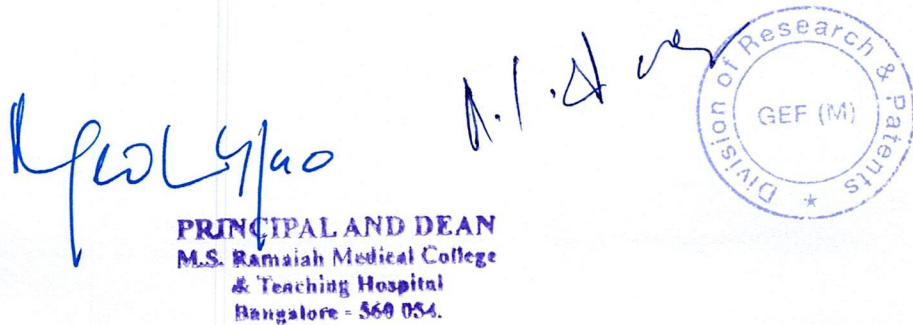 Division of Research & Patents *
GEF (M)
PRINCIPAL AND DEAN
M.S. Ramaiah Medical College
& Teaching Hospital
Bangalore - 560 054.